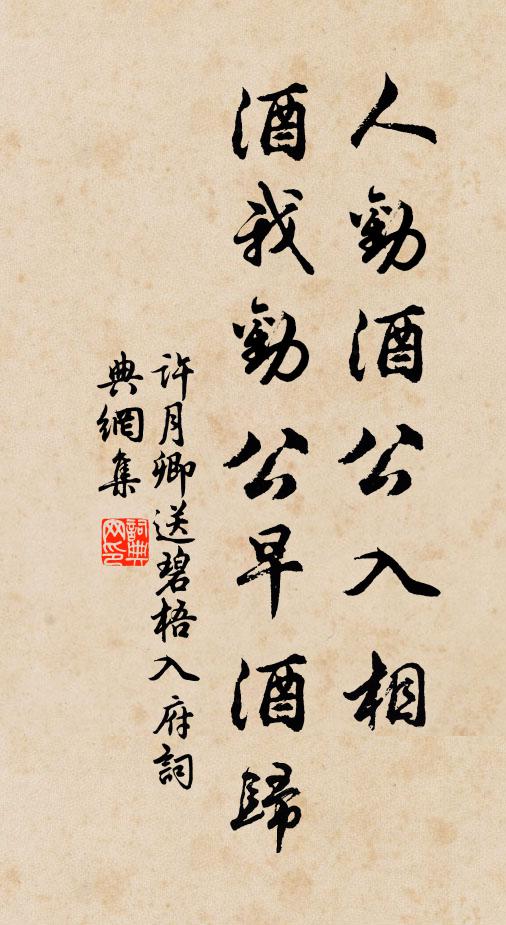 人勸酒公入相
酒我勸公早酒歸
許月卿送碧梧入府詞
典網集
詞典網印